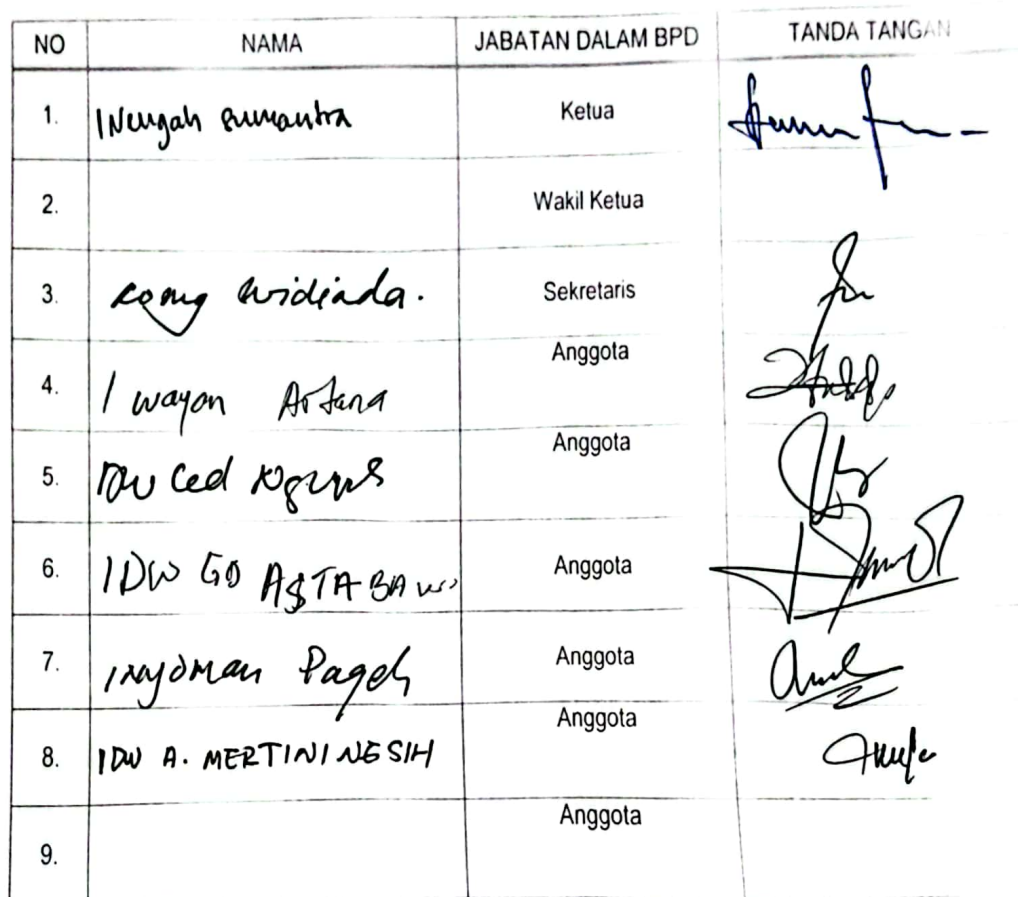 NO NAMA JABATAN DALAM BPD TANDA TANGAN
1. I Nengah Sumantra Ketua
2. Wakil Ketua
3. Widiada. Sekretaris
4. I Wayan Artana Anggota
5. Anggota
6. I DW GD ASTABAWA Anggota
7. I Nyoman Pageh Anggota
8. I DW A. MERTININGSIH Anggota
9. Anggota